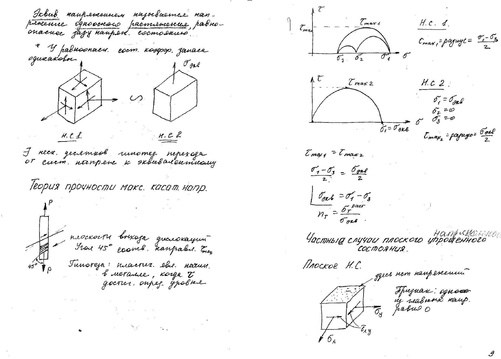 Эквив напряжением называется нап-
ряжение одноосного растяжения, равно-
опасное заду напряж. состоянию.
* У равноопасн. сост. коэфф. запаса
одинаковы.
σэкв
Н.С. 1.
Н.С. 2
∃ неск. десятков гипотез перехода
от сист. напряж к эквивалентному
Теория прочности макс. касат. напр.
P
45°
P
плоскости выхода дислокаций
Угол 45° соотв. направл. τmax
Гипотеза: пластич. явл. начин.
в металле, когда τ
достиг. опред. уровня
τ
τmax1
τmax1
σ3 σ2 σ1 σ
Н.С. 1.
τmax1 = радиус = σ1-σ3/2
τ
τmax2
σ1=σэкв
Н.С 2.
σ1 = σэкв
σ2 = 0
σ3 = 0
τmax2 = радиус = σэкв/2
τmax1 = τmax2
σ1-σ3/2 = σэкв/2
σэкв = σ1-σ3
nт = /σэкв
Частные случаи плоского упрощенного
напряженного
состояния.
Плоское Н.С.
здесь нет напряжений
Признак: одно
из главных напр.
равна 0
σx
τxy
σy
9